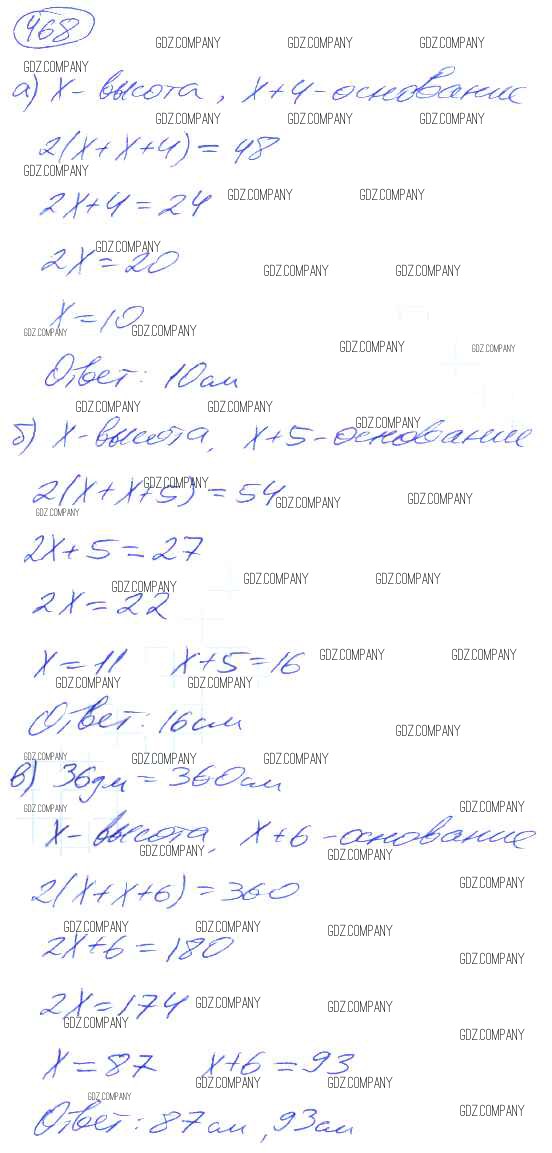 468
GDZ.COMPANY GDZ.COMPANY GDZ.COMPANY
GDZ.COMPANY
а) x - высота, x+4 - основание
GDZ.COMPANY GDZ.COMPANY GDZ.COMPANY
2(x+x+4) = 48
GDZ.COMPANY
2x+4 = 24
GDZ.COMPANY GDZ.COMPANY
GDZ.COMPANY
2x = 20
GDZ.COMPANY GDZ.COMPANY
x = 10
GDZ.COMPANY GDZ.COMPANY
GDZ.COMPANY GDZ.COMPANY
Ответ: 10см
GDZ.COMPANY GDZ.COMPANY
GDZ.COMPANY
б) x - высота, x+5 - основание
2(x+x+5) = 54
GDZ.COMPANY GDZ.COMPANY GDZ.COMPANY
GDZ.COMPANY
2x+5 = 27
GDZ.COMPANY GDZ.COMPANY GDZ.COMPANY
2x = 22
x = 11 x+5 = 16
GDZ.COMPANY GDZ.COMPANY
GDZ.COMPANY GDZ.COMPANY
Ответ: 16см
GDZ.COMPANY
GDZ.COMPANY GDZ.COMPANY GDZ.COMPANY
в) 36дм = 360см
GDZ.COMPANY GDZ.COMPANY
x - высота, x+6 - основание
GDZ.COMPANY GDZ.COMPANY
2(x+x+6) = 360
GDZ.COMPANY
GDZ.COMPANY GDZ.COMPANY GDZ.COMPANY
2x+6 = 180
GDZ.COMPANY
2x = 174
GDZ.COMPANY GDZ.COMPANY
GDZ.COMPANY
GDZ.COMPANY
x = 87 x+6 = 93
GDZ.COMPANY GDZ.COMPANY
GDZ.COMPANY
GDZ.COMPANY
Ответ: 87см, 93см